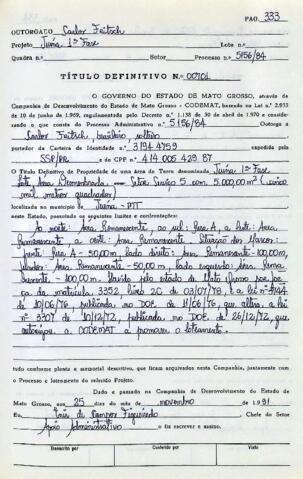 PAG. 333
OUTORGADO Carlos Feitsch
Projeto Juína 1ª Fase Lote n.
Quadra n. Setor Processo n. 5156/84
TÍTULO DEFINITIVO N. 00701
O GOVERNO DO ESTADO DE MATO GROSSO, através da
Companhia de Desenvolvimento do Estado de Mato Grosso - CODEMAT, baseado na Lei n. 2.933
de 10 de junho de 1969, regulamentada pelo Decreto n. 1.138 de 30 de abril de 1970 e considerando
o que consta do Processo Administrativo n. 5156/84 Outorga a
Carlos Feitsch, brasileiro, solteiro
portador da Carteira de Identidade n. 3194759 expedida pela
SSP/PR e do CPF n. 414 005 429 87
O Título Definitivo de Propriedade de uma área de Terra denominada Juína 1ª Fase
5.000,00m² (cinco
mil metros quadrados)
localizada no município de Juína - MT
neste Estado, possuindo os seguintes limites e confrontações:
Ao norte: Área Remanescente, ao sul: Rua A, a leste: Área
Remanescente, a oeste: Área Remanescente. Situação dos Marcos:
frente: Rua A - 50,00m lado direito: Área Remanescente - 100,00m,
fundos: Área Remanescente - 50,00m, lado esquerdo: Área Rema
nescente - 100,00m. Havido pelo Estado de Mato Grosso por for
ça da matrícula 3352, livro 2C de 03/07/78 e a lei nº
10/06/76 publicada no DOE de 1º/06/76, que altera a lei
nº 3307 de 10/12/72, publicada no DOE de 26/12/72, que
autorizou a CODEMAT a promover o loteamento.
tudo conforme planta e memorial descritivo, que ficam arquivados nesta Companhia, juntamente com
o Processo e loteamento do referido Projeto.
Dado e passado na Companhia de Desenvolvimento do Estado de
Mato Grosso, aos 25 dias do mês de novembro de 1991
Eu, de Campos Figueiredo Chefe do Setor
Apoio Administrativo o fiz escrever e assino.
Transcrito por Conferido por Visto